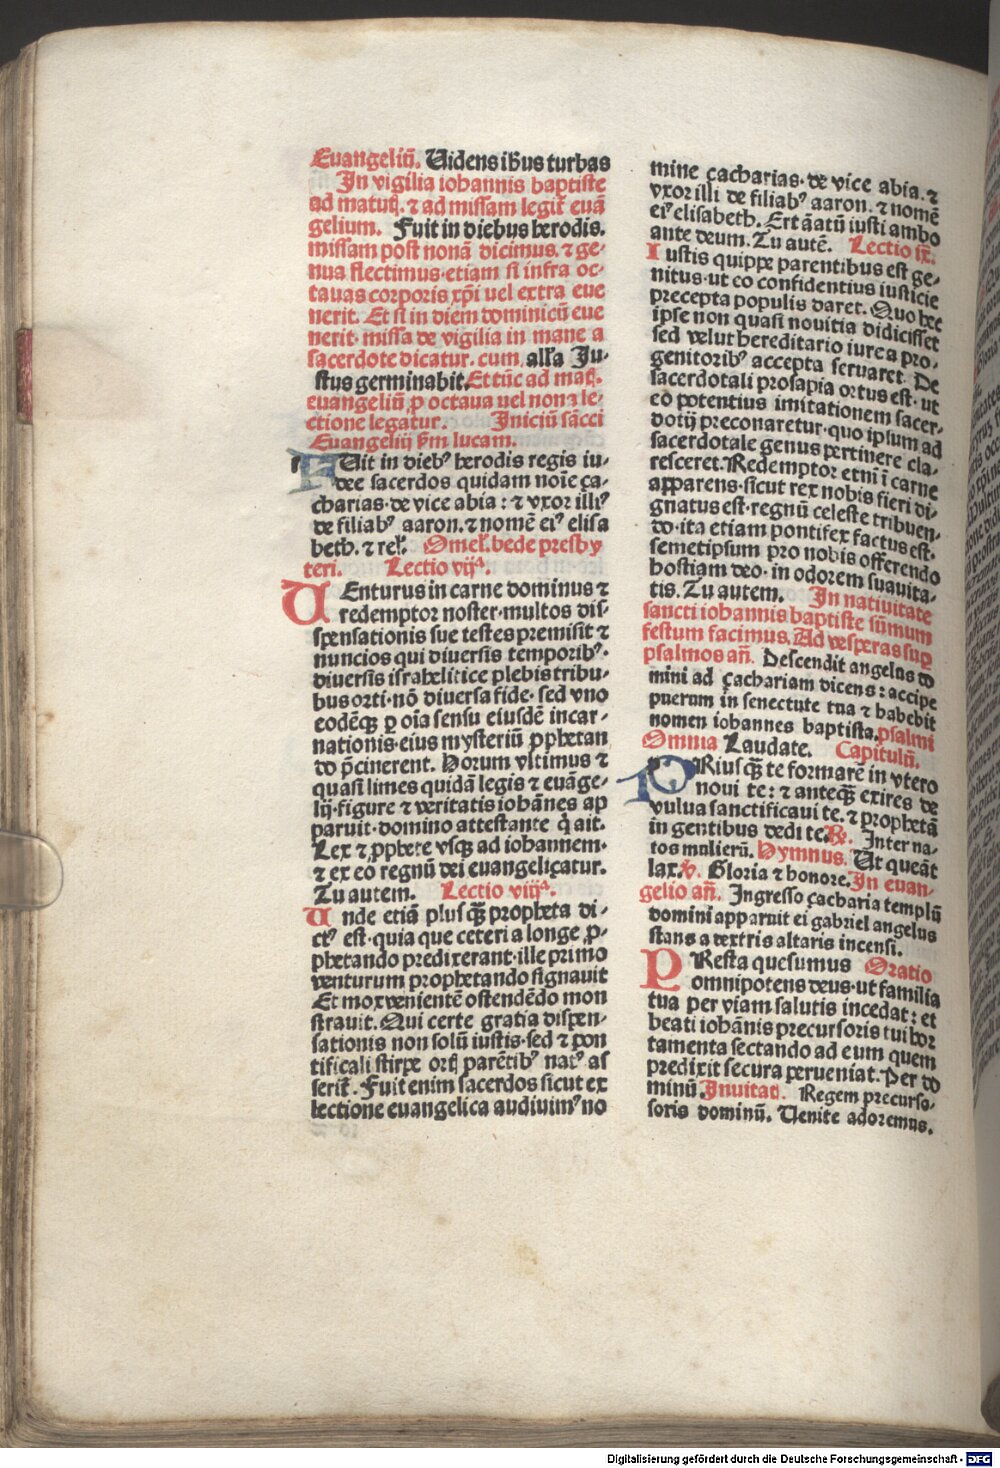 Euangeliū. Uidens ihus turbas
In vigilia iohannis baptiste
ad matuṭ. ⁊ ad missam legit̄ euā
gelium. Fuit in diebus herodis.
missam post nonā dicimus. ⁊ ge-
nua flectimus· etiam si infra oc-
tauas corporis xp̄i uel extra eue
nerit. Et si in diem dominicū eue
nerit· missa de vigilia in mane a
sacerdote dicatur. cum, all'a Ju-
stus germinabit. Et tūc ad mat̄.
euangeliū ꝓ octaua uel nona le-
ctione legatur. Iniciū sācti
Euangelij s̄m lucam.
FUit in diebꝰ herodis regis iu-
dee sacerdos quidam noīe ça-
charias· de vice abia: ⁊ vxor illiꝰ
de filiabꝰ aaron. ⁊ nomē eiꝰ elisa
beth. ⁊ rel̄. Omel̄. bede presby
teri. Lectio vijᵃ.
UEnturus in carne dominus ⁊
redemptor noster· multos dis-
pensationis sue testes premisit ⁊
nuncios qui diuersis temporibꝰ·
diuersis israhelitice plebis tribu-
bus orti· nō diuersa fide· sed vno
eodēqꝫ ꝑ oīa sensu eiusdē incar-
nationis eius mysteriū ꝓphetan
do p̄cinerent. Horum vltimus ⁊
quasi limes quidā legis ⁊ euāge-
lij· figure ⁊ veritatis iohānes ap
paruit· domino attestante q̇ ait.
Lex ⁊ ꝓphete vsqꝫ ad iohannem·
⁊ ex eo regnū dei euangeliçatur.
Tu autem. Lectio viijᵃ.
Unde etiā plusqꝫ propheta di-
ctꝰ est· quia que ceteri a longe ꝓ-
phetando predixerant· ille primo
venturum prophetando signauit
Et mox venientē ostendēdo mon
strauit. Qui certe gratia dispen-
sationis non solū iustis· sed ⁊ pon
tificali stirpe ortꝯ parētibꝰ natꝰ as
serit̄. Fuit enim sacerdos sicut ex
lectione euangelica audiuimꝰ no
mine çacharias· de vice abia. ⁊
vxor illi de filiabꝰ aaron. ⁊ nomē
eiꝰ elisabeth. Ert āatū iusti ambo
ante deum. Tu autē. Lectio ix̄.
Iustis quippe parentibus est ge-
nitus· ut eo confidentius iusticie
precepta populis daret. Quo hec
ipse non quasi nouitia didicisset
sed velut hereditario iure a pro-
genitoribꝰ accepta seruaret. De
sacerdotali prosapia ortus est· ut
eo potentius imitationem sacer-
dotij preconaretur· quo ipsum ad
sacerdotale genus pertinere cla-
resceret. Redemptor etnī ī carne
apparens· sicut rex nobis fieri di-
gnatus est· regnū celeste tribuen-
do· ita etiam pontifex factus est·
semetipsum pro nobis offerendo
hostiam deo· in odorem suauita-
tis. Tu autem. In natiuitate
sancti iohannis baptiste sūmum
festum facimus. Ad vesperas suꝑ
psalmos añ. Descendit angelus do
mini ad çachariam dicens: accipe
puerum in senectute tua ⁊ habebit
nomen iohannes baptista. psalmi
Omnia Laudate. Capitulū.
PRiusqꝫ te formarē in vtero
noui te: ⁊ anteqꝫ exires de
vulua sanctificaui te. ⁊ prophetā
in gentibus dedi te. ℟. Inter na-
tos mulierū. Hymnus. Ut queāt
lax. ℣. Gloria ⁊ honore. In euan-
gelio añ. Ingresso çacharia templū
domini apparuit ei gabriel angelus
stans a dextris altaris incensi.
PResta quesumus Oratio
omnipotens deus· ut familia
tua per viam salutis incedat: et
beati iohānis precursoris tui hor
tamenta sectando ad eum quem
predixit secura perueniat. Per do
minū. Inuitat̄. Regem precurso-
soris dominū. Uenite adoremus.
Digitalisierung gefördert durch die Deutsche Forschungsgemeinschaft - DFG